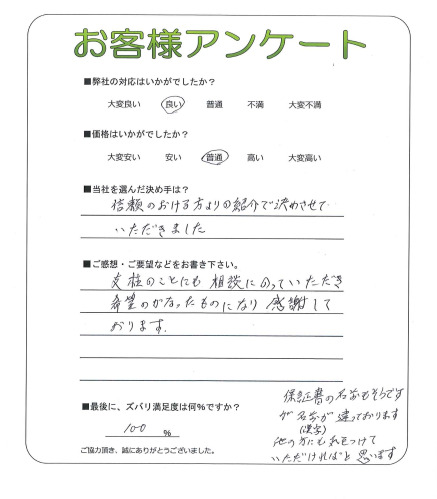 お客様アンケート
■弊社の対応はいかがでしたか?
大変良い 良い 普通 不満 大変不満
■価格はいかがでしたか?
大変安い 安い 普通 高い 大変高い
■当社を選んだ決め手は?
信頼のおける方よりの紹介で決めさせて
いただきました
■ご感想・ご要望などをお書き下さい。
支柱のことにも相談にのっていただき
希望のかなったものになり感謝して
おります.
■最後に、ズバリ満足度は何%ですか?
100 %
ご協力頂き、誠にありがとうございました。
保証書の名前もそうです
が名前が違っております
(漢字)
他の方にも気をつけて
いただければと思います